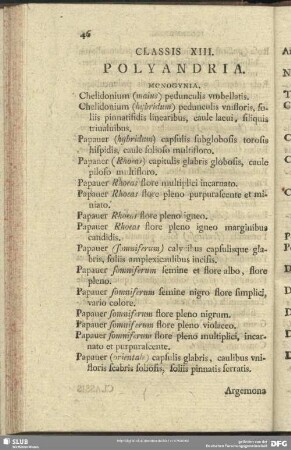 46
CLASSIS XIII.
POLYANDRIA.
MONOGYNIA.
Chelidonium (maius) pedunculis vmbellatis.
Chelidonium (hybridum) pedunculis vnifloris, fo-
liis pinnatifidis linearibus, caule laeui, siliquis
triualuibus.
Papauer (hybridum) capsulis subglobosis torosis
hispidis, caule folioso multifloro.
Papauer (Rhoeas) capitulis glabris globosis, caule
piloso multifloro.
Papauer Rhoeas flore multiplici incarnato.
Papauer Rhoeas flore pleno purpurascente et mi-
niato.
Papauer Rhoeas flore pleno igneo.
Papauer Rhoeas flore pleno igneo marginibus
candidis.
Papauer (somniferum) calycibus capsulisque gla-
bris, foliis amplexicaulibus incisis.
Papauer somniferum semine et flore albo, flore
pleno.
Papauer somniferum semine nigro flore simplici,
vario colore.
Papauer somniferum flore pleno nigrum.
Papauer somniferum flore pleno violaceo.
Papauer somniferum flore pleno multiplici, incar-
nato et purpurascente.
Papauer (orientale) capsulis glabris, caulibus vni-
floris scabris foliosis, foliis pinnatis serratis.
Argemona
SLUB
DFG